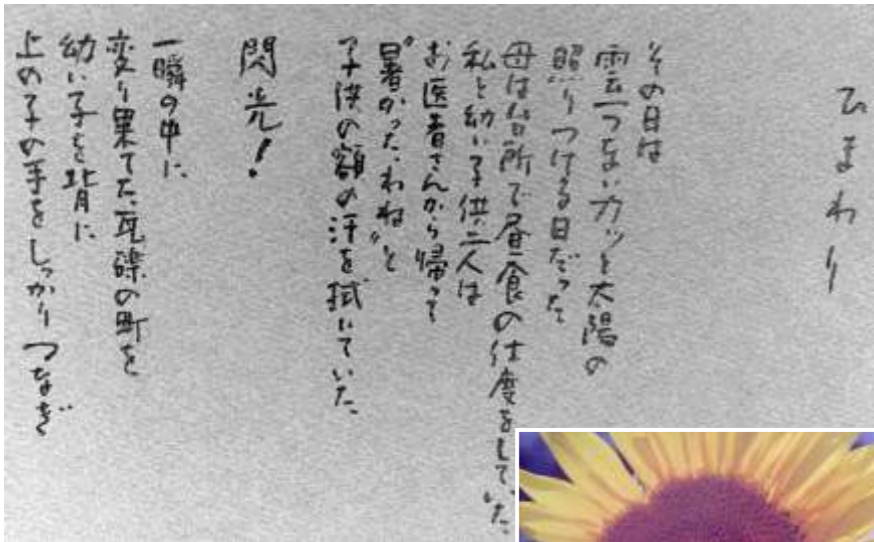 ひまわり
その日は
雲一つないカッと太陽の
照りつける日だった
母は台所で昼食の仕度をしていた、
私と幼い子供二人は
お医者さんから帰って
"暑かったわね"と
子供の額の汗を拭いていた、
閃光!
一瞬の中に、
変り果てた瓦礫の町を
幼い子を背に
上の子の手をしっかりつなぎ